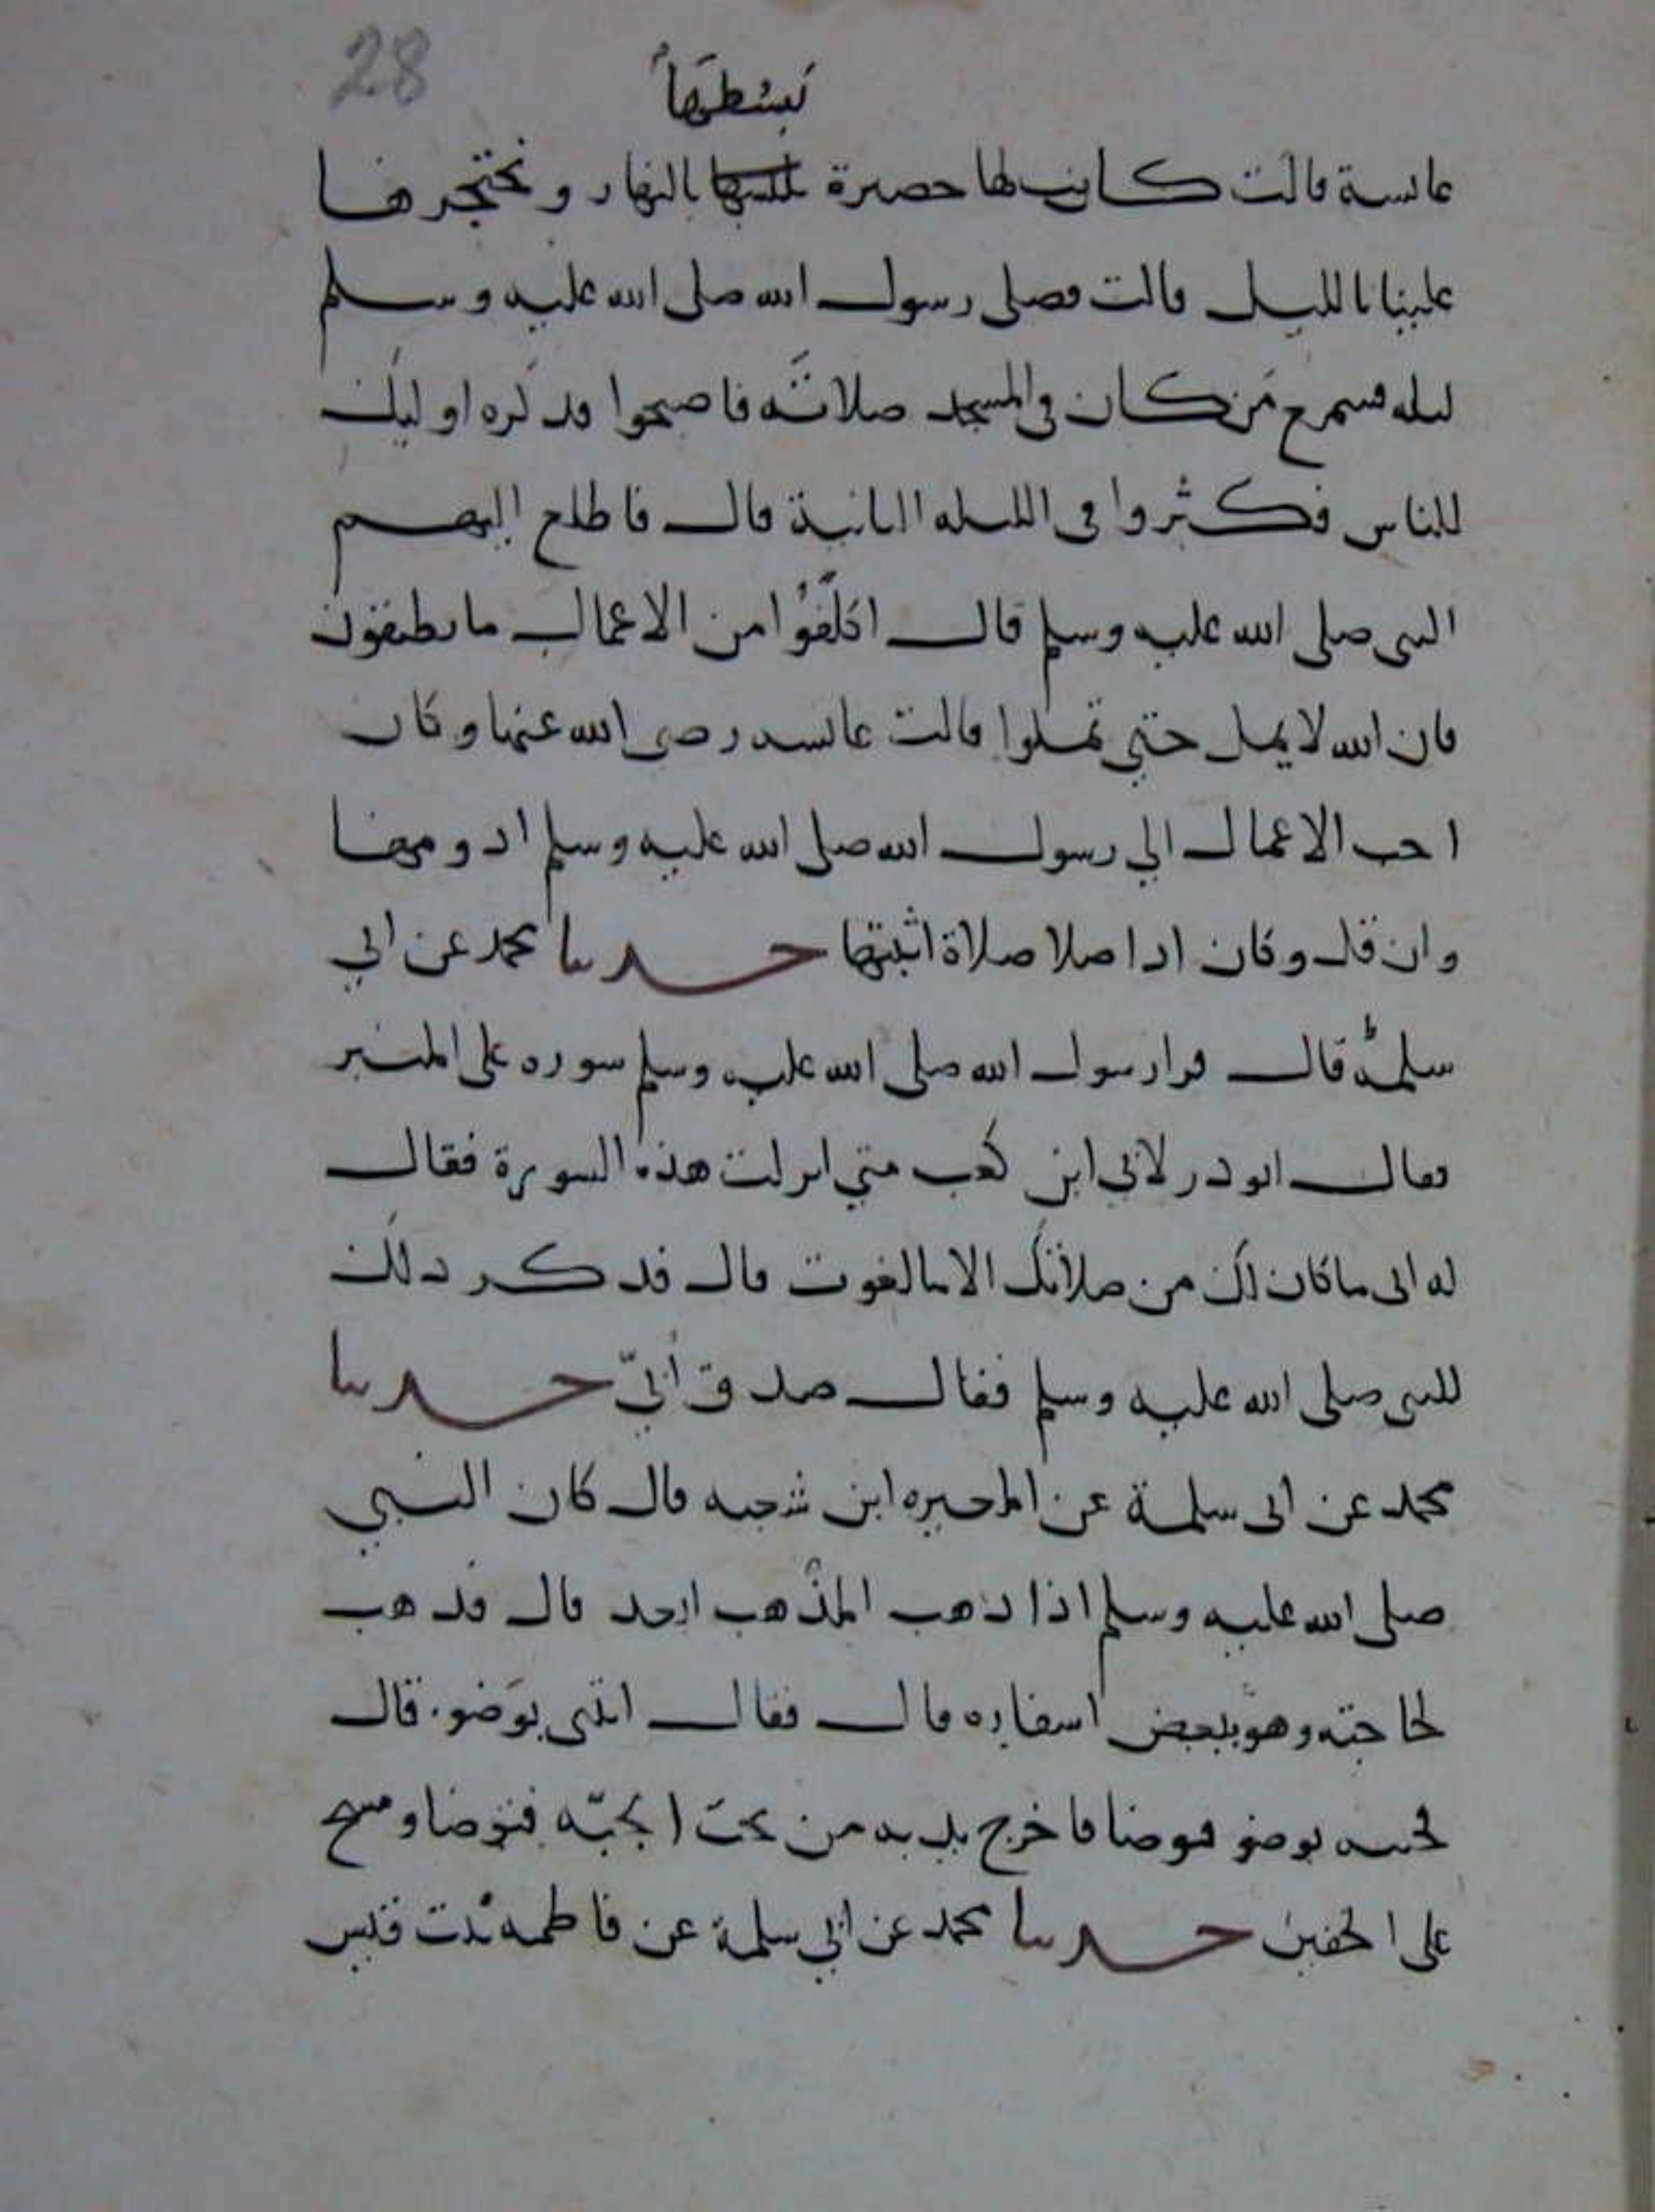 28
نبسطها
عائسة قالت كانت لها حصيرة نبسطها بالنهار ونحتجرها
علينا بالليل قالت فصلى رسول الله صلى الله عليه وسلم
ليله فسمع من كان في المسجد صلاته فاصبحوا فذكره اوليك
للناس فكثروا في الليله الثانية قال فاطلع اليهم
النبي صلى الله عليه وسلم قال اكلفوا من الاعمال ما تطيقون
فان الله لا يمل حتي تملوا قالت عائسه رضى الله عنها وكان
احب الاعمال الي رسول الله صلى الله عليه وسلم ادومها
وان قل وكان اذا صلا صلاة اثبتها حدثنا محمد عن ابي
سلمة قال قرا رسول الله صلى الله عليه وسلم سوره على المنبر
فقال ابو ذر لابي ابن كعب متي انزلت هذه السورة فقال
له ابى ما كان لك من صلاتك الا ما لغوت قال فذكر ذلك
للنبي صلى الله عليه وسلم فقال صدق أبيّ حدثنا
محمد عن ابى سلمة عن المغيره ابن شعبه قال كان النبي
صلى الله عليه وسلم اذا ذهب المذهب ابعد قال فذهب
لحاجته وهو ببعض اسفاره قال فقال ائتنى بوَضو قال
فجيته بوضو فتوضا فاخرج يديه من تحت الجبّه فتوضا ومسح
على الخفين حدثنا محمد عن ابي سلمة عن فاطمه بنت قيس